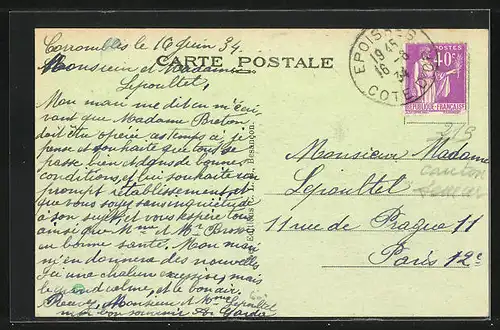 Corrombles le 16 Juin 34.
Monsieur et Madame
Lepoultel,
CARTE POSTALE
Mon mari me dit en m'écri-
vant que Madame Breton
doit être opérée ces temps-ci, je
pense et souhaite que tout se
passe bien et dans de bonnes
conditions, et lui souhaite un
prompt rétablissement, et
que vous soyez sans inquiétude
à son sujet, et vous espère tous
ainsi que Mme et Mr
en bonne santé. Mon mari
m'en donnera des nouvelles
Ici une chaleur excessive, mais
le grand calme, et le bon air,
Recevez, Monsieur et Mme Lepoultel
mon bon souvenir
Besançon
EPOISSES
19 45
16 -6
34
COTE D'OR
POSTES
40c
REPUBLIQUE FRANÇAISE
Monsieur Madame
Lepoultel
11 rue de Prague 11
Paris 12e